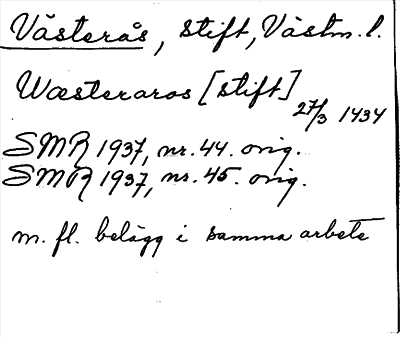 Västerås, stift, Västm. l.
Wæsteraros [stift]
27/3 1434
SMR 1937, nr. 44. orig.
SMR 1937, nr. 45. orig.
m. fl. belägg i samma arbete